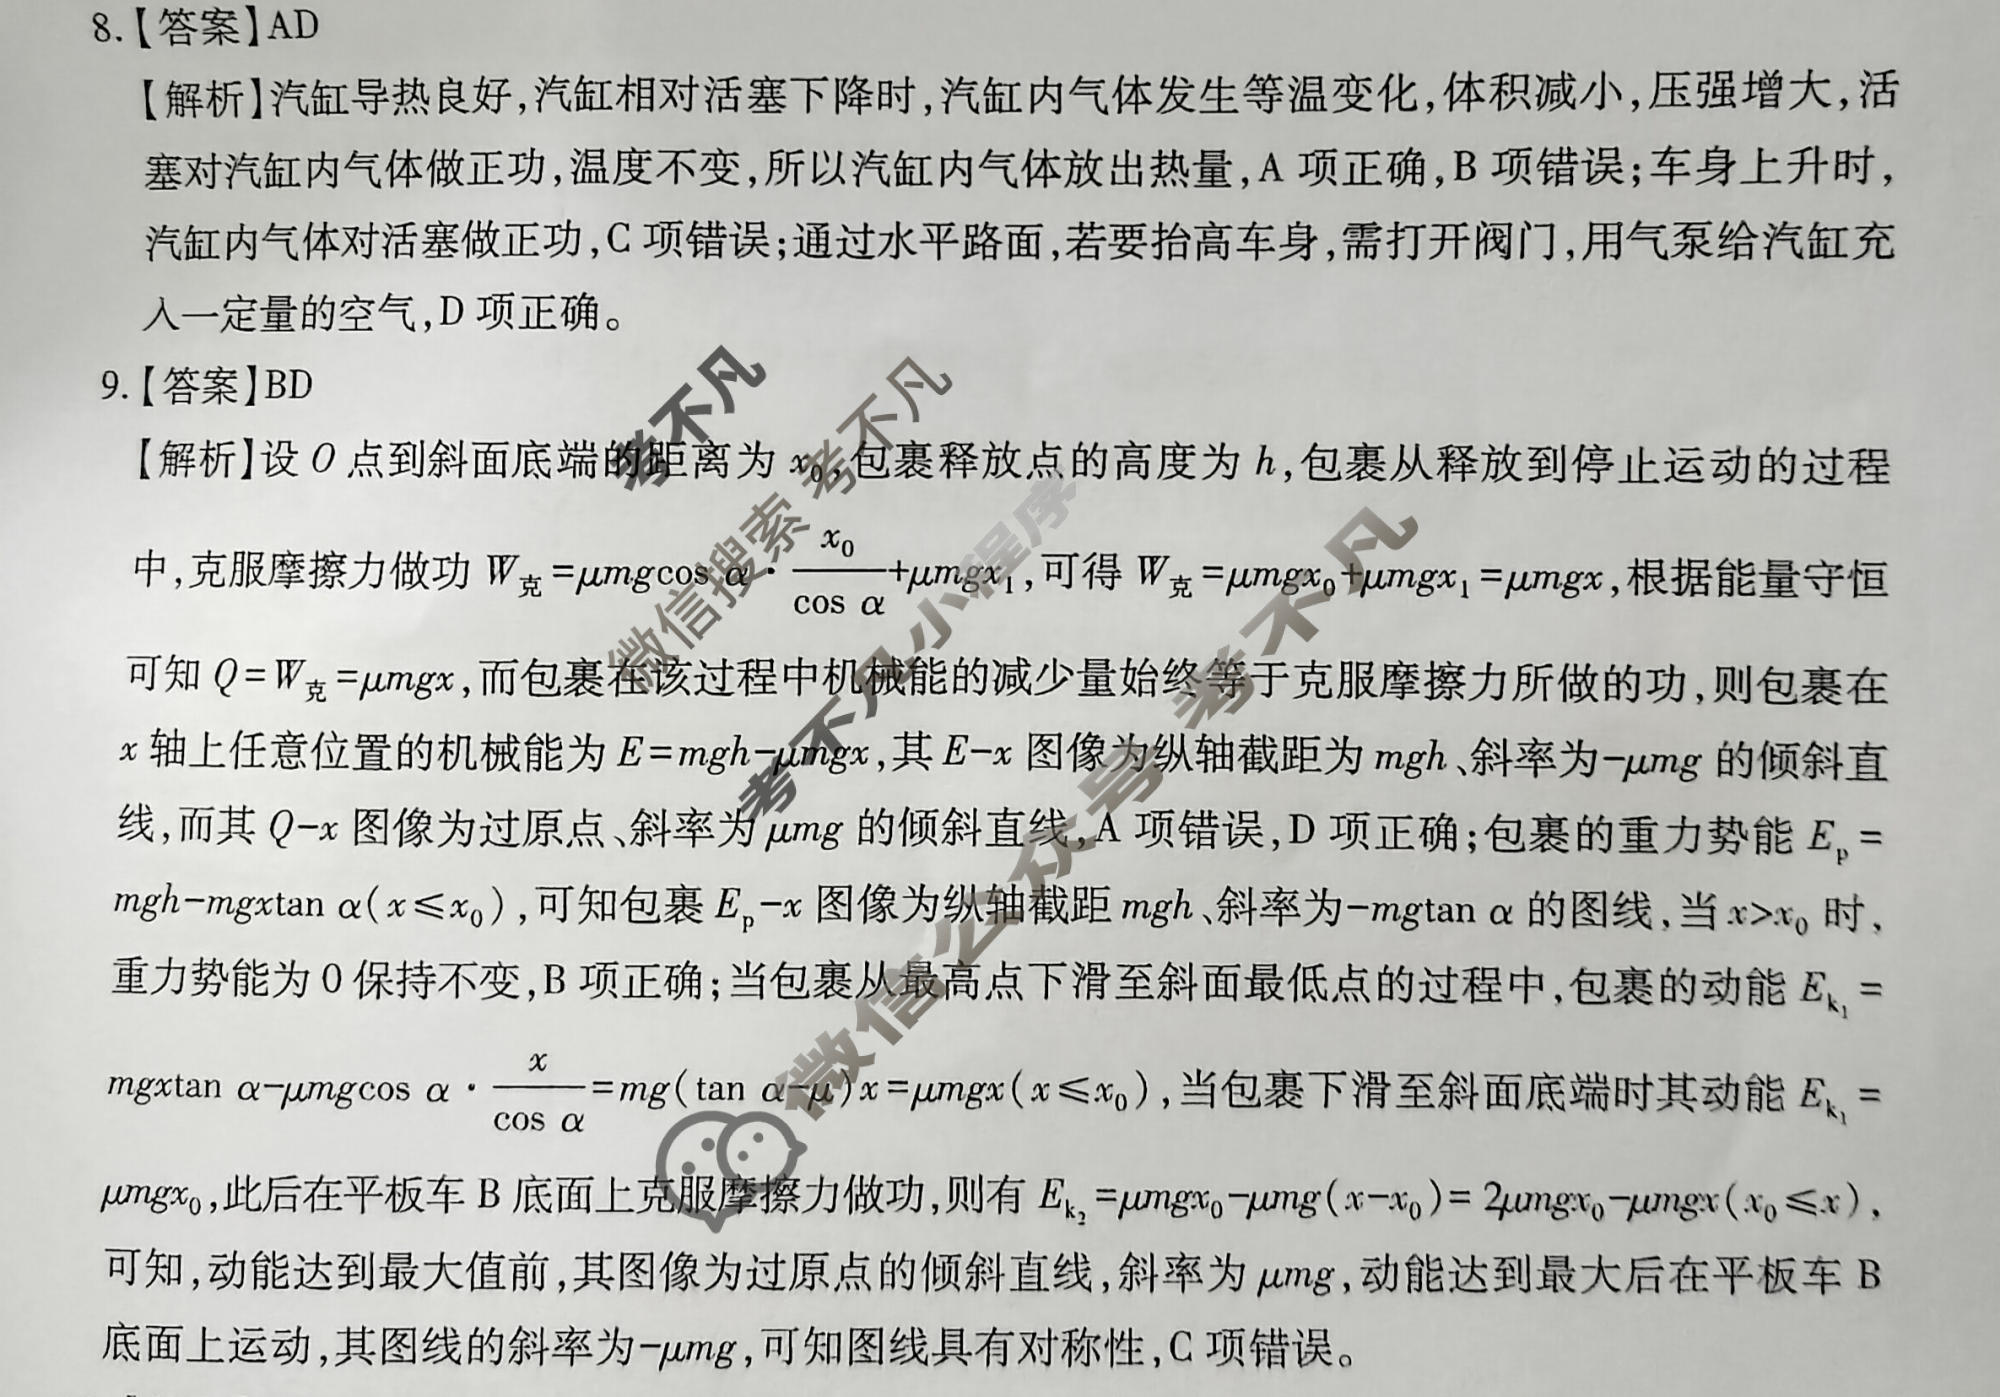 8.【答案】AD
【解析】汽缸导热良好,汽缸相对活塞下降时,汽缸内气体发生等温变化,体积减小,压强增大,活
塞对汽缸内气体做正功,温度不变,所以汽缸内气体放出热量,A 项正确,B 项错误;车身上升时,
汽缸内气体对活塞做正功,C 项错误;通过水平路面,若要抬高车身,需打开阀门,用气泵给汽缸充
入一定量的空气,D 项正确。
9.【答案】BD
【解析】设 O 点到斜面底端的距离为 x₀,包裹释放点的高度为 h,包裹从释放到停止运动的过程
中,克服摩擦力做功 W克=μmgcos α·x₀/cos α+μmgx₁,可得 W克=μmgx₀+μmgx₁=μmgx,根据能量守恒
可知 Q=W克=μmgx,而包裹在该过程中机械能的减少量始终等于克服摩擦力所做的功,则包裹在
x 轴上任意位置的机械能为 E=mgh-μmgx,其 E-x 图像为纵轴截距为 mgh、斜率为-μmg 的倾斜直
线,而其 Q-x 图像为过原点、斜率为 μmg 的倾斜直线,A 项错误,D 项正确;包裹的重力势能 Eₚ=
mgh-mgxtan α(x≤x₀),可知包裹 Eₚ-x 图像为纵轴截距 mgh、斜率为-mgtan α 的图线,当 x>x₀ 时,
重力势能为 0 保持不变,B 项正确;当包裹从最高点下滑至斜面最低点的过程中,包裹的动能 Eₖ₁=
mgxtan α-μmgcos α·x/cos α=mg(tan α-μ)x=μmgx(x≤x₀),当包裹下滑至斜面底端时其动能 Eₖ₁=
μmgx₀,此后在平板车 B 底面上克服摩擦力做功,则有 Eₖ₂=μmgx₀-μmg(x-x₀)=2μmgx₀-μmgx(x₀≤x),
可知,动能达到最大值前,其图像为过原点的倾斜直线,斜率为 μmg,动能达到最大后在平板车 B
底面上运动,其图线的斜率为-μmg,可知图线具有对称性,C 项错误。
考不凡
微信搜索 考不凡
考不凡小程序
微信公众号 考不凡